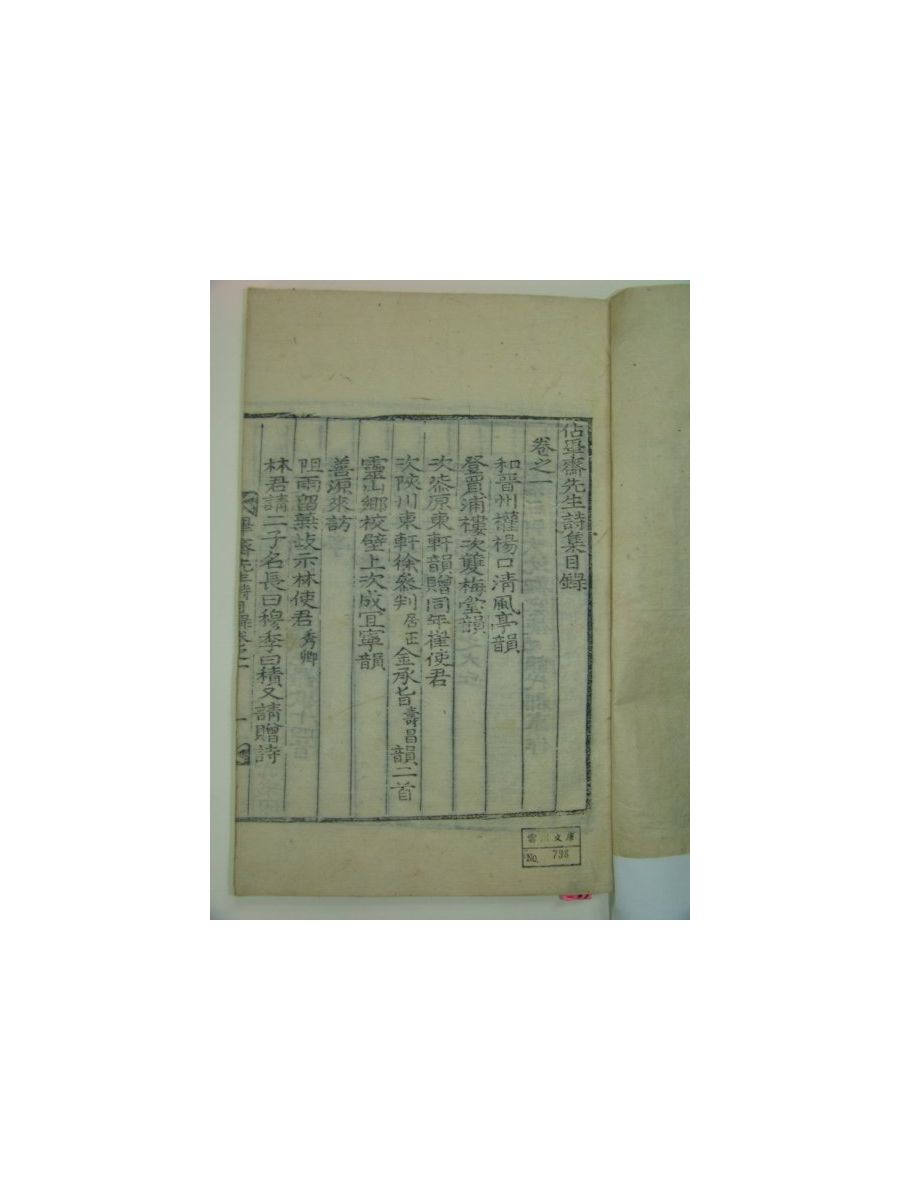 佔畢齋先生詩集目錄
卷之一
和晋州權楊口清風亭韻
登買浦樓次雙梅堂韻
次漆原東軒韻贈同年崔使君
次陜川東軒徐叅判居正金承旨壽昌韻二首
靈山鄕校壁上次成冝寧韻
善源來訪
阻雨留蕪歧示林使君秀卿
林君請二子名長曰穆季曰積又請贈詩
畢齋先生詩目錄卷之一
文庫
No. 738